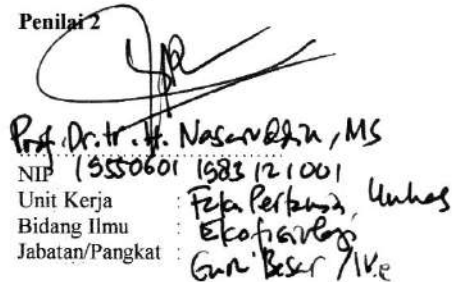 Penilai 2
Prof. Dr. Ir. H. Nasaruddin, MS
NIP 19550601 1983 121001
Unit Kerja : Fak. Pertanian, Unhas
Bidang Ilmu : Ekofisiologi
Jabatan/Pangkat : Guru Besar / IV.e